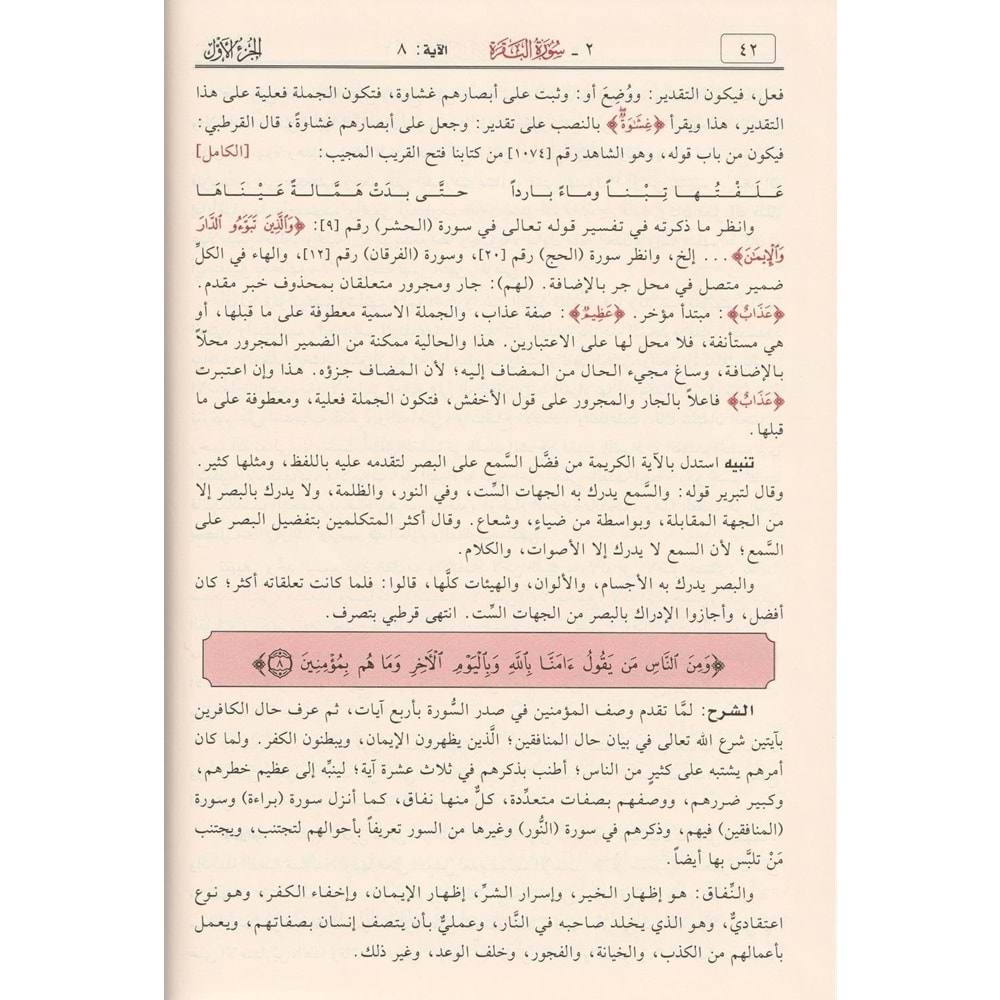 ٤٢ ٢ - سُورَةُ البَقَرَة الآية: ٨ الجزء الأول
فعل، فيكون التقدير: ووُضِعَ أو: وثبت على أبصارهم غشاوة، فتكون الجملة فعلية على هذا
التقدير، هذا ويقرأ ﴿غِشَٰوَةٌ﴾ بالنصب على تقدير: وجعل على أبصارهم غشاوةً، قال القرطبي:
فيكون من باب قوله، وهو الشاهد رقم [١٠٧٤] من كتابنا فتح القريب المجيب: [الكامل]
عَـلَـفْـتُـهـا تِـبْـنـاً ومـاءً بـارداً حـتَّـى بـدَتْ هَـمَّـالـةً عَـيْـنَـاهَـا
وانظر ما ذكرته في تفسير قوله تعالى في سورة (الحشر) رقم [٩]: ﴿وَٱلَّذِينَ تَبَوَّءُو ٱلدَّارَ
وَٱلْإِيمَٰنَ﴾... إلخ، وانظر سورة (الحج) رقم [٢٠]، وسورة (الفرقان) رقم [١٢]، والهاء في الكلِّ
ضمير متصل في محل جر بالإضافة. (لهم): جار ومجرور متعلقان بمحذوف خبر مقدم.
﴿عَذَابٌ﴾: مبتدأ مؤخر. ﴿عَظِيمٌ﴾: صفة عذاب، والجملة الاسمية معطوفة على ما قبلها، أو
هي مستأنفة، فلا محل لها على الاعتبارين. هذا والحالية ممكنة من الضمير المجرور محلّاً
بالإضافة، وساغ مجيء الحال من المضاف إليه؛ لأن المضاف جزؤه. هذا وإن اعتبرت
﴿عَذَابٌ﴾ فاعلاً بالجار والمجرور على قول الأخفش، فتكون الجملة فعلية، ومعطوفة على ما
قبلها.
تنبيه استدل بالآية الكريمة من فضَّل السَّمع على البصر لتقدمه عليه باللفظ، ومثلها كثير.
وقال لتبرير قوله: والسَّمع يدرك به الجهات السِّت، وفي النور، والظلمة، ولا يدرك بالبصر إلا
من الجهة المقابلة، وبواسطة من ضياءٍ، وشعاع. وقال أكثر المتكلمين بتفضيل البصر على
السَّمع؛ لأن السمع لا يدرك إلا الأصوات، والكلام.
والبصر يدرك به الأجسام، والألوان، والهيئات كلَّها، قالوا: فلما كانت تعلقاته أكثر؛ كان
أفضل، وأجازوا الإدراك بالبصر من الجهات السِّت. انتهى قرطبي بتصرف.
﴿وَمِنَ ٱلنَّاسِ مَن يَقُولُ ءَامَنَّا بِٱللَّهِ وَبِٱلْيَوْمِ ٱلْأَخِرِ وَمَا هُم بِمُؤْمِنِينَ ٨﴾
الشرح: لمَّا تقدم وصف المؤمنين في صدر السُّورة بأربع آيات، ثم عرف حال الكافرين
بآيتين شرع الله تعالى في بيان حال المنافقين؛ الَّذين يظهرون الإيمان، ويبطنون الكفر. ولما كان
أمرهم يشتبه على كثيرٍ من الناس؛ أطنب بذكرهم في ثلاث عشرة آية؛ لينبِّه إلى عظيم خطرهم،
وكبير ضررهم، ووصفهم بصفات متعدِّدة، كلٌّ منها نفاق، كما أنزل سورة (براءة) وسورة
(المنافقين) فيهم، وذكرهم في سورة (النُّور) وغيرها من السور تعريفاً بأحوالهم لتجتنب، ويجتنب
مَنْ تلبَّس بها أيضاً.
والنِّفاق: هو إظهار الخير، وإسرار الشرِّ، إظهار الإيمان، وإخفاء الكفر، وهو نوع
اعتقاديٌّ، وهو الذي يخلد صاحبه في النَّار، وعمليٌّ بأن يتصف إنسان بصفاتهم، ويعمل
بأعمالهم من الكذب، والخيانة، والفجور، وخلف الوعد، وغير ذلك.